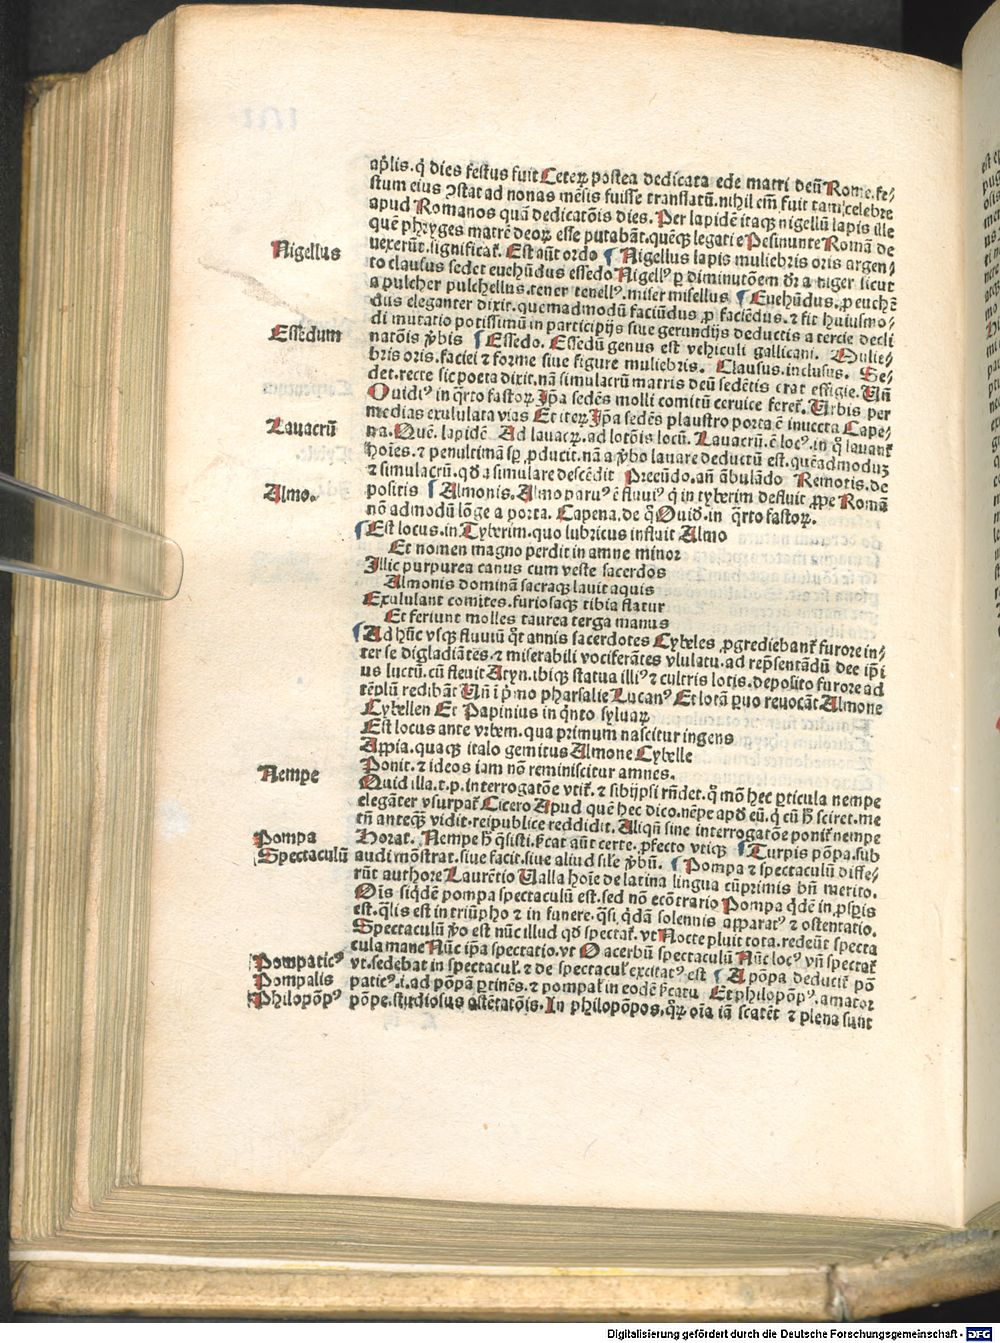 ap̄lis. q̄ dies festus fuit Ceteꝝ postea dedicata ede matri deū Rome. fe⸗
stum eius ꝯstat ad nonas mēsis fuisse translatū. nihil em̄ fuit tam celebre
apud Romanos quā dedicatōis dies. Per lapidē itaqꝫ nigellū lapis ille
quē phryges matrē deoꝝ esse putabāt. quēqꝫ legati e Pesinunte Romā de
uexerūt. significat̄. Est aūt ordo ¶ Nigellus lapis muliebris oris argen⸗
Nigellus
to clausus sedet euehūdus essedo Nigellꝰ ꝑ diminutōem dr̄ a niger sicut
a pulcher pulchellus. tener tenellꝰ. miser misellus ¶ Euehūdus. ꝓ euehē
dus eleganter dixit. quemadmodū faciūdus ꝓ faciēdus. ⁊ fit huiusmo⸗
di mutatio potissimū in participijs siue gerundijs deductis a tercie decli
Essedum
natōis v̄bis ¶ Essedo. Essedū genus est vehiculi gallicani. Mulie⸗
bris oris. faciei ⁊ forme siue figure muliebris. Clausus. inclusus. Se⸗
det. recte sic poeta dixit. nā simulacrū matris deū sedētis erat effigie. Un̄
Ouidiꝰ in q̄rto fastoꝝ Ip̄a sedēs molli comitū ceruice feret̄. Urbis per
medias exululata vias Et iteꝝ Ip̄a sedēs plaustro porta ē inuecta Cape⸗
Lauacrū
na. Quē. lapidē Ad lauacꝝ. ad lotōis locū. Lauacrū. ē locꝰ. in q̄ lauant̄
hoīes. ⁊ penultimā sp̄ ꝓducit. nā a v̄bo lauare deductū est. quēadmoduꝫ
⁊ simulacrū. qd̄ a simulare descēdit Preeūdo. an̄ ābulādo Remotis. de
Almo.
positis ¶ Almonis. Almo paruꝰ ē fluuiꝰ q̄ in tyberim defluit ꝓpe Romā
nō admodū lōge a porta. Capena. de q̄ Ouid. in q̄rto fastoꝝ.
¶ Est locus. in Tyberim. quo lubricus influit Almo
Et nomen magno perdit in amne minor
Illic purpurea canus cum veste sacerdos
Almonis dominā sacraqꝫ lauit aquis
Exululant comites. furiosaqꝫ tibia flatur
Et feriunt molles taurea terga manus
¶ Ad hūc vsqꝫ fluuiū q̄t annis sacerdotes Cybeles ꝓgrediebant̄ furore in⸗
ter se digladiātes. ⁊ miserabili vociferātes vlulatu. ad rep̄sentādū dee ip̄i
us luctū. cū fleuit Atyn. ibiqꝫ statua illiꝰ ⁊ cultris lotis. deposito furore ad
tēplū redibāt Un̄ ī p̄mo pharsalie Lucanꝰ Et lotā ꝑuo reuocāt Almone
Cybellen Et Papinius in q̄nto syluaꝝ
Est locus ante vrbem. qua primum nascitur ingens
Appia. quaqꝫ italo gemitus Almone Cybelle
Ponit. ⁊ ideos iam nō reminiscitur amnes.
Nempe
Quid illa. t. p. interrogatōe vtit̄. ⁊ sibijpsi rn̄det. q̄ mō hec ꝑticula nempe
elegāter vsurpat̄ Cicero Apud quē hec dico. nēpe apd̄ eū. q̄ cū h̄ sciret. me
tn̄ anteqꝫ vidit. reipublice reddidit. Aliqn̄ sine interrogatōe ponit̄ nempe
Pompa
Horat. Nempe h̄ q̄sisti. ꝑ̄cat aūt certe. ꝓfecto vtiqꝫ ¶ Turpis pōpa. sub
Spectaculū
audi mōstrat. siue facit. siue aliud sil̄e v̄bū. ¶ Pompa ⁊ spectaculū diffe⸗
rūt authore Laurētio Ualla hoīe de latina lingua cūprimis bn̄ merito.
Oīs siqdē pompa spectaculū est. sed nō ecōtrario Pompa q̄dē in ꝓspis
est. q̄lis est in triūpho ⁊ in funere. q̄si q̄dā solennis apparatꝰ ⁊ ostentatio.
Spectaculū v̄o est nūc illud qd̄ spectat̄. vt Nocte pluit tota. redeūt specta
cula mane Nūc ip̄a spectatio. vt O acerbū spectaculū Nūc locꝰ vn̄ spectat̄
Pompaticꝰ
vt. sedebat in spectacul̄. ⁊ de spectacul̄ excitatꝰ est ¶ A pōpa deducit̄ pō
Pompalis
paticꝰ. i. ad pōpā ꝑtinēs. ⁊ pompal̄ in eodē ꝑ̄catu Et philopōpꝰ. amator
Philopōpꝰ
pōpe. studiosus ostētatōis. In philopōpos. q̄ꝝ oīa iā scatēt ⁊ plena sunt
Digitalisierung gefördert durch die Deutsche Forschungsgemeinschaft - DFG